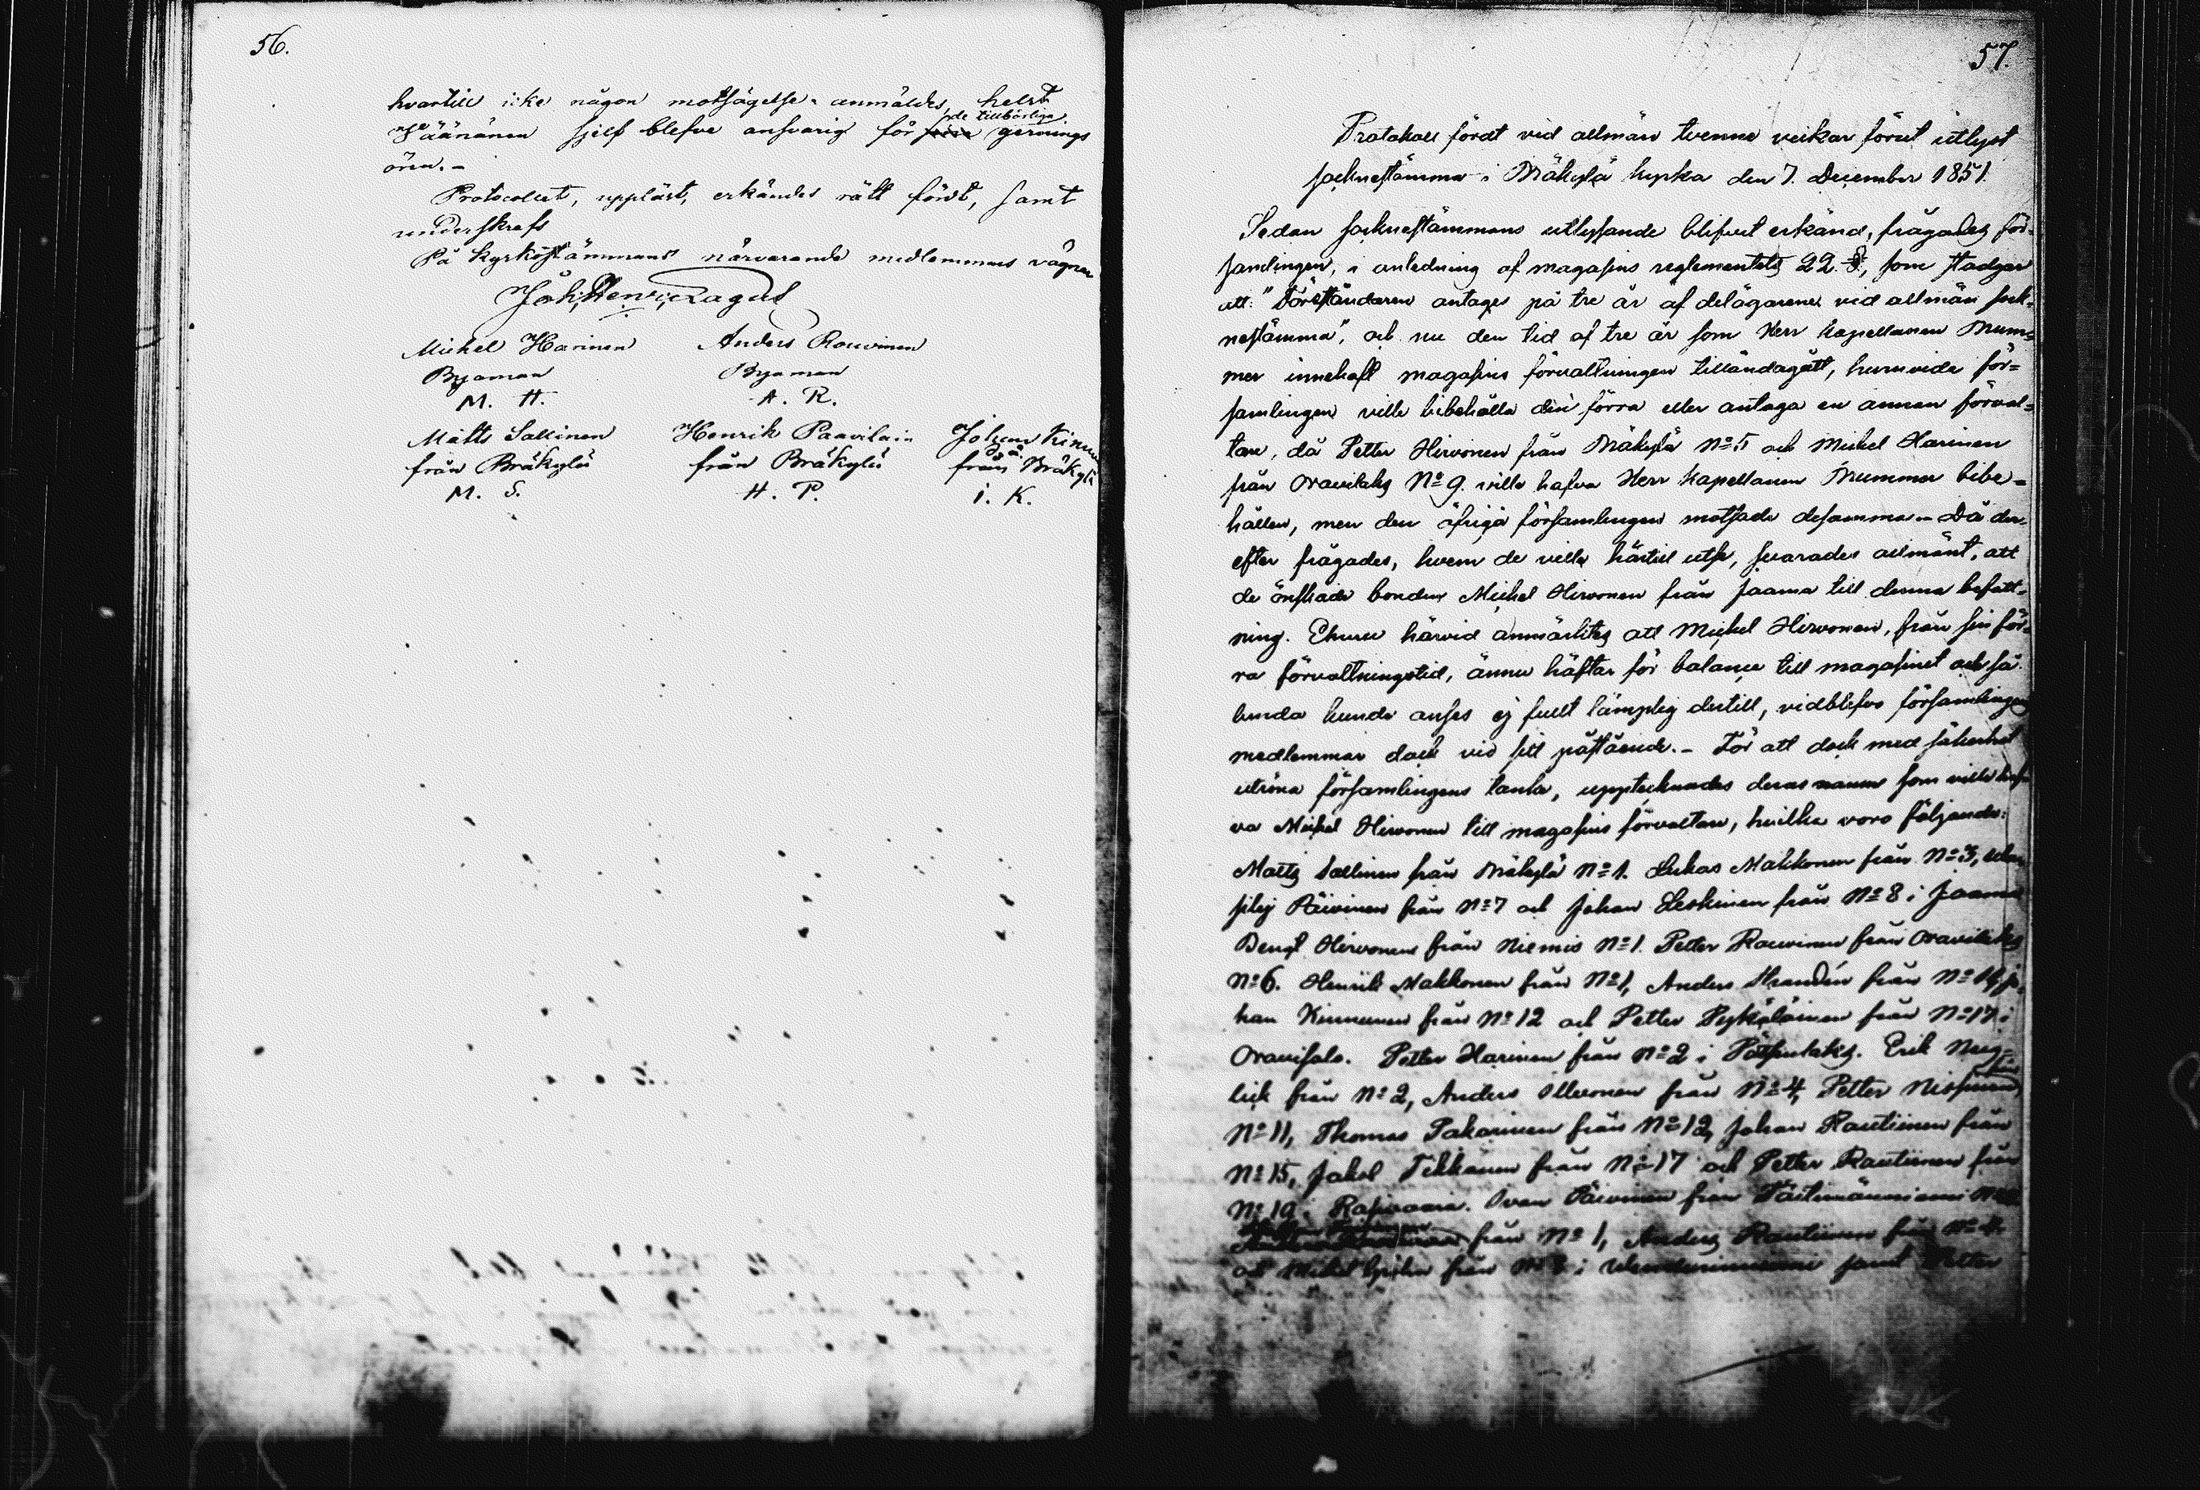 56.
hvartill icke någon motsägelse anmäldes, helst
Wäänänen sjelf blefve ansvarig för de tillbörliga gernings
ören. -
Protocollet, uppläst, erkändes rätt fördt, samt
underskrefs
På Kyrkostämmans närvarande medlemmars vägnar
Joh: Henr: Lagus
Michel Harinen Anders Rouvinen
Byaman Byaman
M. H. A. R.
Matts Sallinen Henrik Paavilain Johan Kinnu
från Bräkylä från Bräkylä från Bräkylä
M. S. H. P. i. K.
57.
Protokoll fördt vid allmän tvenne veckor förut utlyst
socknestämma i Bräkylä kyrka den 7. December 1851.
Sedan socknestämmans utlysande blifvit erkänd, frågades för-
samlingen, i anledning af magasins reglementets 22. §, som stadgar
att: "Föreståndaren antages på tre år af delägarene vid allmän sock-
nestämma", och nu den tid af tre år som Herr Kapellanen Mum-
mer innehaft magasins förvaltningen tilländagått, huruvida för-
samlingen ville bibehålla den förra eller antaga en annan förval-
tare, då Petter Hirvonen från Bräkylä No 5 och Michel Harinen
från Oravilaks No 9. ville hafva Herr Kapellanen Mummer bibe-
hållen, men den öfriga församlingen motsade detsamma. - Då der-
efter frågades, hvem de ville härtill utse, svarades allmänt, att
de önskade bonden Michel Hirvonen från Jaama till denna befatt-
ning. Ehuru härvid anmärktes att Michel Hirvonen, från sin för-
ra förvaltningstid, ännu häftar för balance till magasinet och så-
lunda kunde anses ej fullt lämplig dertill, vidblefvo församlingens
medlemmar dock vid sitt påstående. - För att dock med säkerhet
utröna församlingens tanke, upptecknades deras namn som ville haf-
va Michel Hirvonen till magasins förvaltare, hvilka voro följande:
Matts Sallinen från Bräkylä No 1. Lukas Makkonen från No 3,
Päivinen från No 7 och Johan Leskinen från No 8 i Jaama
Bengt Hirvonen från Niemis No 1. Petter Rouvinen från Oravilaks
No 6. Henrik Makkonen från No 1, Anders från No 14, Jo-
han Kinnunen från No 12 och Petter Pyköläinen från No 17 i
Oravisalo. Petter Harinen från No 2 i Pötsönlaks. Erik
från No 2, Anders Illvonen från No 4, Petter Nissinen
No 11, Thomas Pakarinen från No 12, Johan Rautiinen från
No 15, Jakob Tikkanen från No 17 och Petter Rautiinen från
No 19 i Rasivaara. Ivan Päivinen från
från No 1, Anders Rautiinen från No 4
och Michel från No 8 i samt Petter